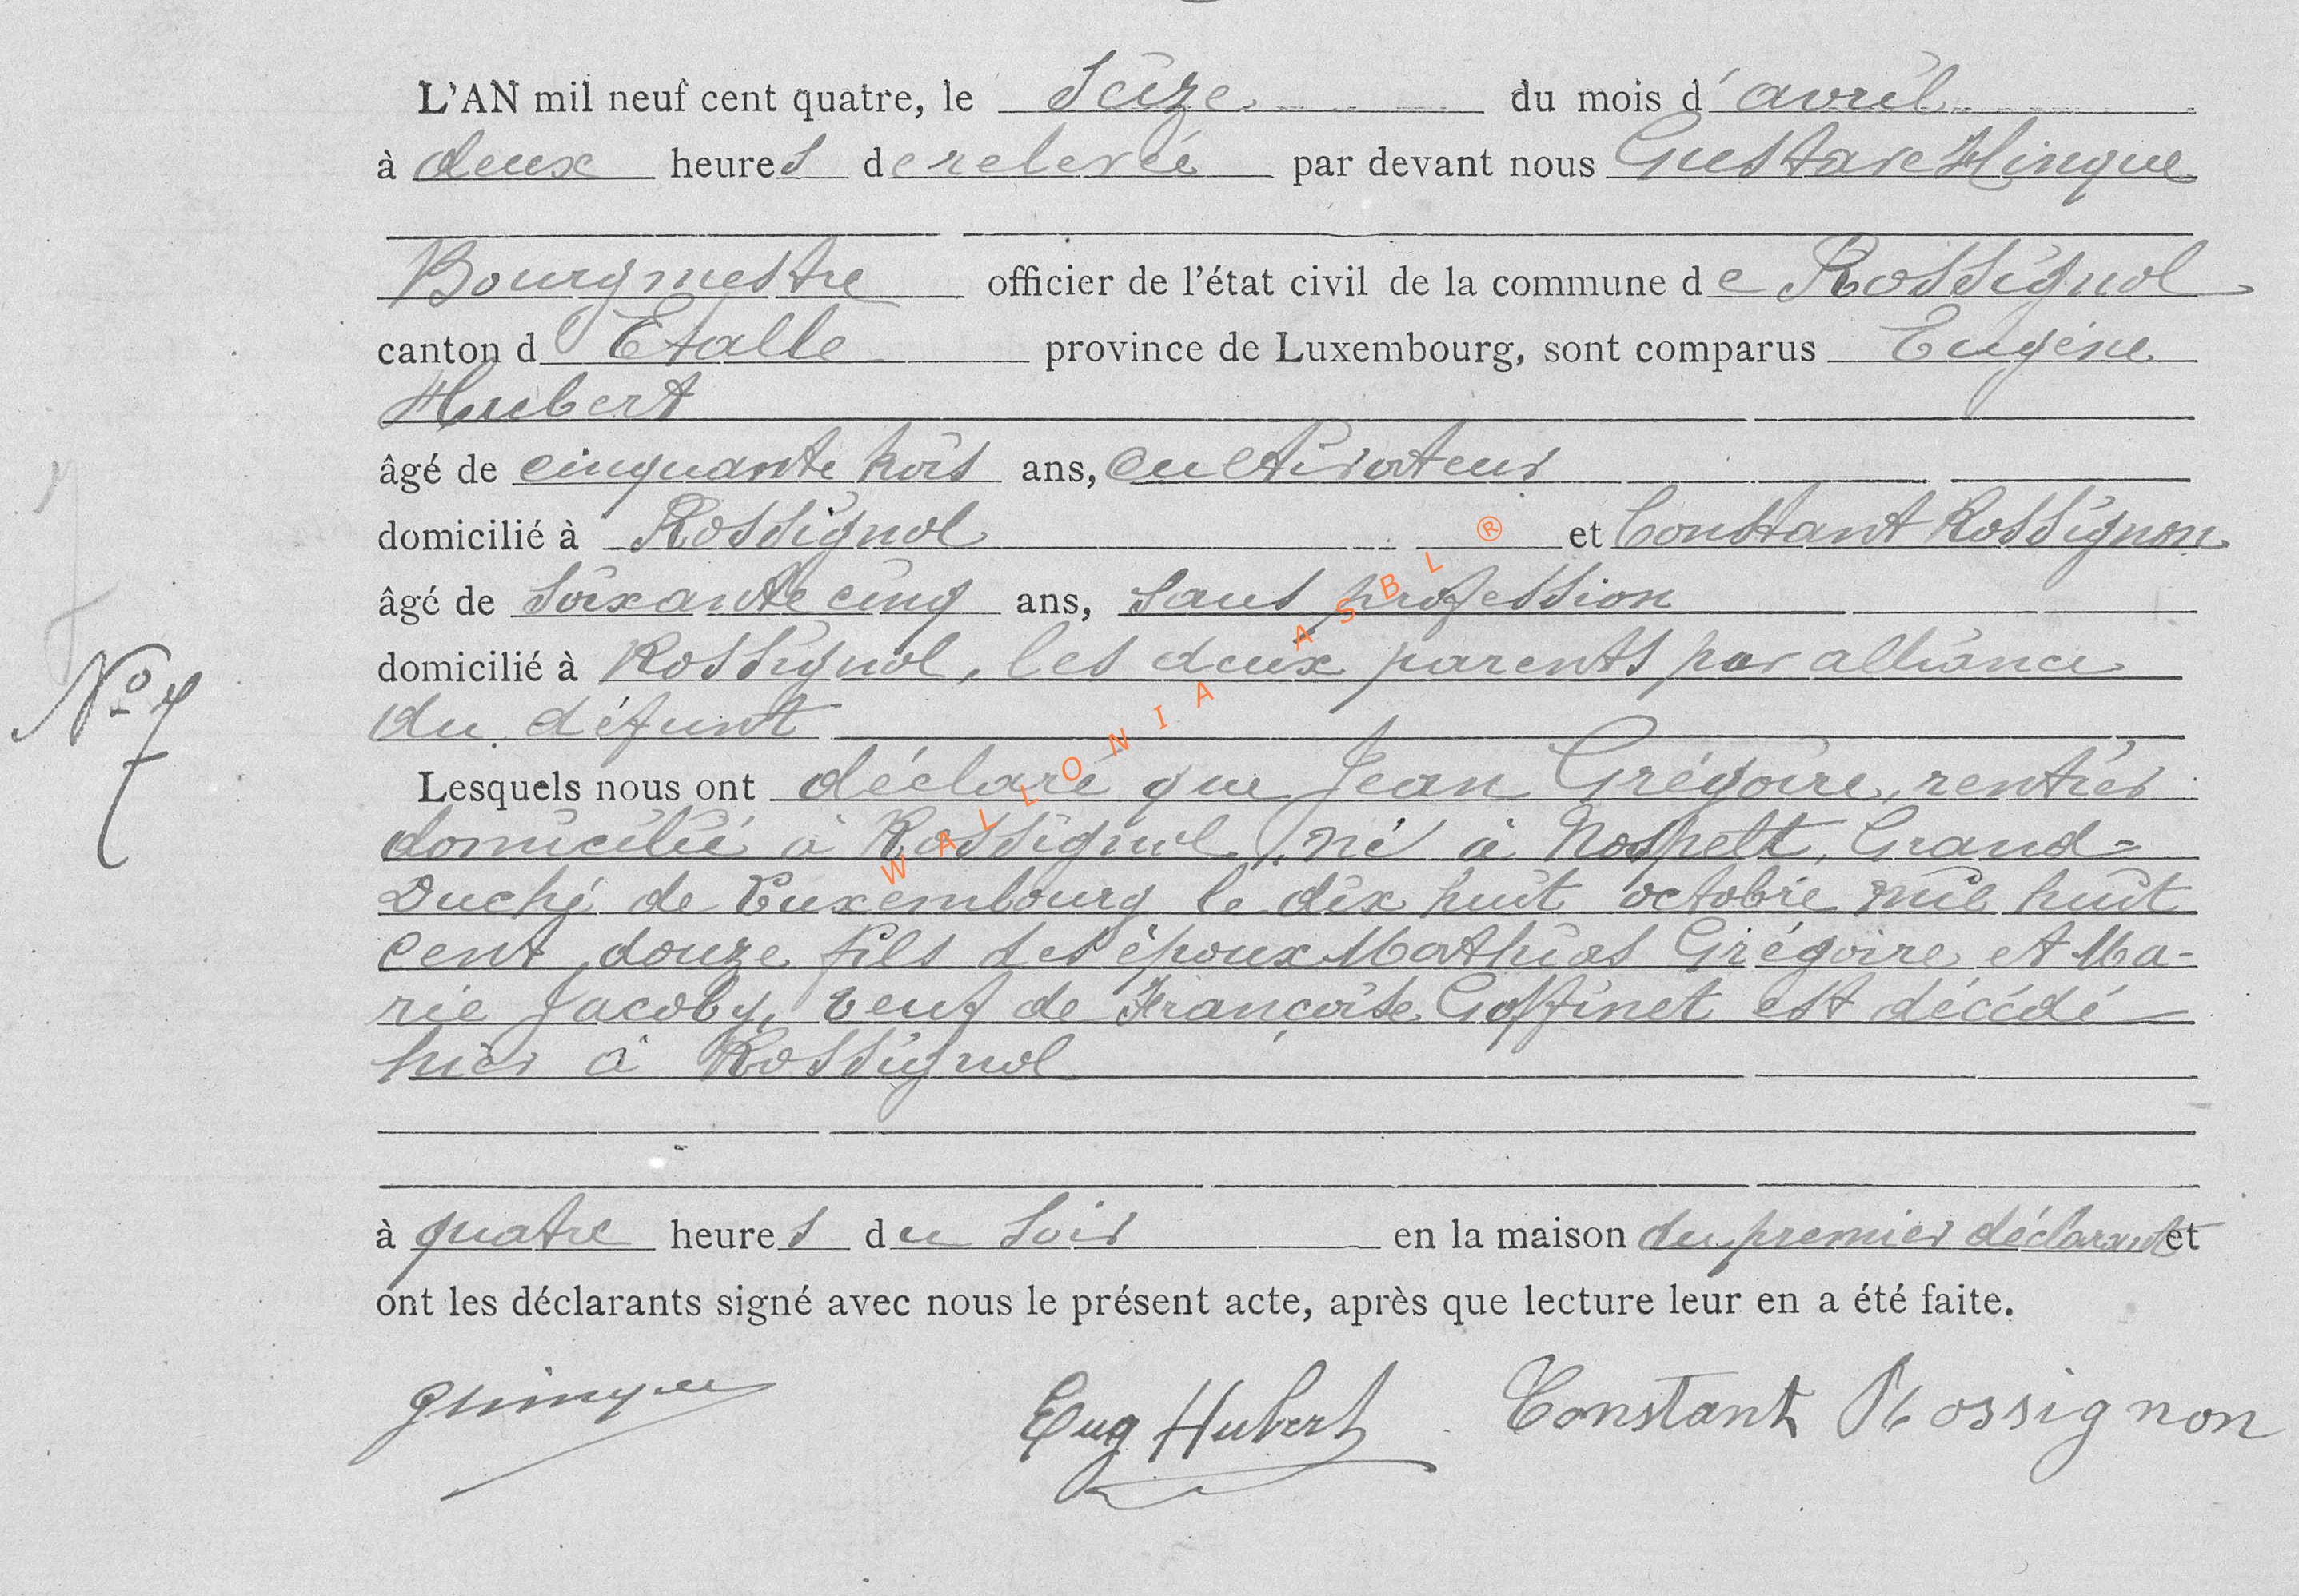 L'AN mil neuf cent quatre, le Seize du mois d'avril
à deux heures de relevée par devant nous Gustave Hinque
Bourgmestre officier de l'état civil de la commune de Rossignol
canton d Etalle province de Luxembourg, sont comparus Eugène
Hubert
âgé de cinquante trois ans, Cultivateur
domicilié à Rossignol et Constant Rossignon
âgé de Soixante cinq ans, sans profession
domicilié à Rossignol, les deux parents par alliance
N° 7
du défunt
Lesquels nous ont déclaré que Jean Grégoire, rentier
domicilié à Rossignol, né à Nospelt, Grand-
Duché de Luxembourg le dix huit octobre mil huit
cent douze fils des époux Mathias Grégoire et Ma-
rie Jacoby, veuf de Françoise Goffinet est décédé
hier à Rossignol
à quatre heures du soir en la maison du premier déclarant et
ont les déclarants signé avec nous le présent acte, après que lecture leur en a été faite.
GHinque Eug Hubert Constant Rossignon
WALLONIA ASBL ®